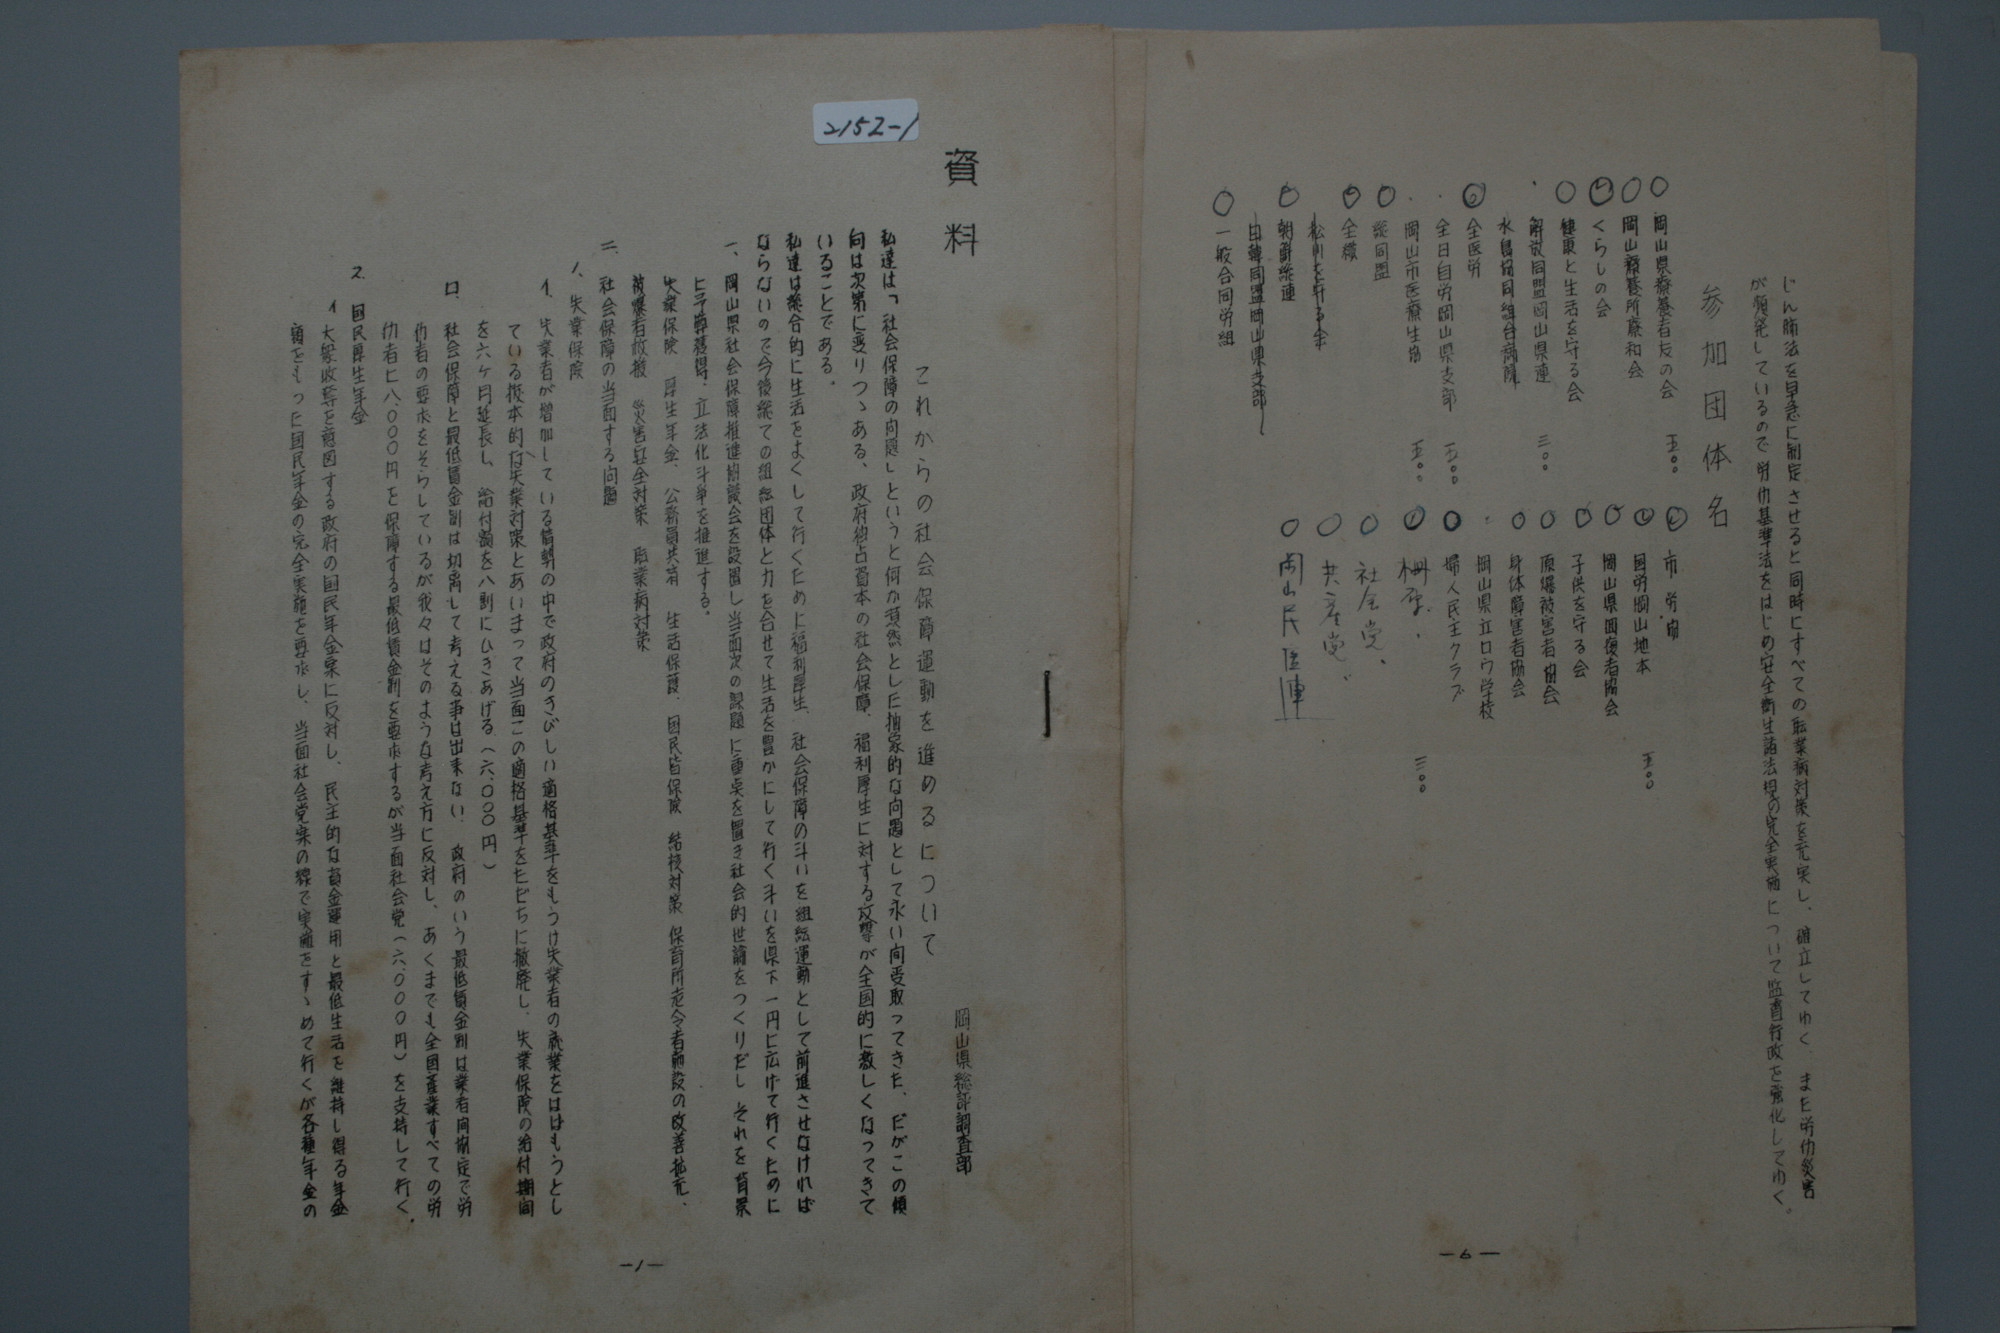 じん肺法を早急に制定させると同時にすべての職業病対策を充実し、確立してゆく、また労仂災害
が頻発しているので労仂基準法をはじめ安全衛生諸法規の完全実施について監督行政を強化してゆく。
参加団体名
岡山県療養者友の会 五〇〇
岡山療養所療和会
くらしの会
健康と生活を守る会
解放同盟岡山県連 三〇〇
水島協同組合病院
全医労
全日自労岡山県支部 五〇〇
岡山市医療生協 五〇〇
総同盟
全織
松川を守る会
朝鮮総連
日韓同盟岡山県支部
一般合同労組
市労協
国労岡山地本 五〇〇
岡山県回復者協会
子供を守る会
原爆被害者協会
身体障害者協会
岡山県立ロウ学校
婦人民主クラブ
柵原 三〇〇
社会党
共産党
岡山民医連
—6—
2152-1
資料
これからの社会保障運動を進めるについて
岡山県総評調査部
私達は「社会保障の問題」というと何か漠然とした抽象的な問題として永い間受取ってきた、だがこの傾
向は次第に変りつゝある、政府独占資本の社会保障、福利厚生に対する攻撃が全国的に激しくなってきて
いることである。
私達は総合的に生活をよくして行くために福利厚生、社会保障の斗いを組織運動として前進させなければ
ならないので今後総ての組織団体と力を合せて生活を豊かにして行く斗いを県下一円に広げて行くために
一、岡山県社会保障推進協議会を設置し当面次の課題に重点を置き社会的世論をつくりだし それを背景
に予算獲得、立法化斗争を推進する。
失業保険 厚生年金、公務員共済 生活保護、国民皆保険 結核対策 保育所老令者施設の改善拡充、
被爆者救援 災害安全対策 職業病対策
二、社会保障の当面する問題
1、失業保険
イ、失業者が増加している情勢の中で政府のきびしい適格基準をもうけ失業者の就業をはばもうとし
ている抜本的な失業対策とあいまって当面この適格基準をただちに撤廃し、失業保険の給付期間
を六ヶ月延長し、給付額を八割にひきあげる（六、〇〇〇円）
ロ、社会保障と最低賃金制は切離して考える事は出来ない、政府のいう最低賃金制は業者間協定で労
仂者の要求をそらしているが我々はそのような考え方に反対し、あくまでも全国産業すべての労
仂者に八、〇〇〇円を保障する最低賃金制を要求するが当面社会党（六、〇〇〇円）を支持して行く、
2、国民厚生年金
イ 大衆収奪を意図する政府の国民年金案に反対し、民主的な資金運用と最低生活を維持し得る年金
額をもった国民年金の完全実施を要求し、当面社会党案の線で実施をすゝめて行くが各種年金の
—1—